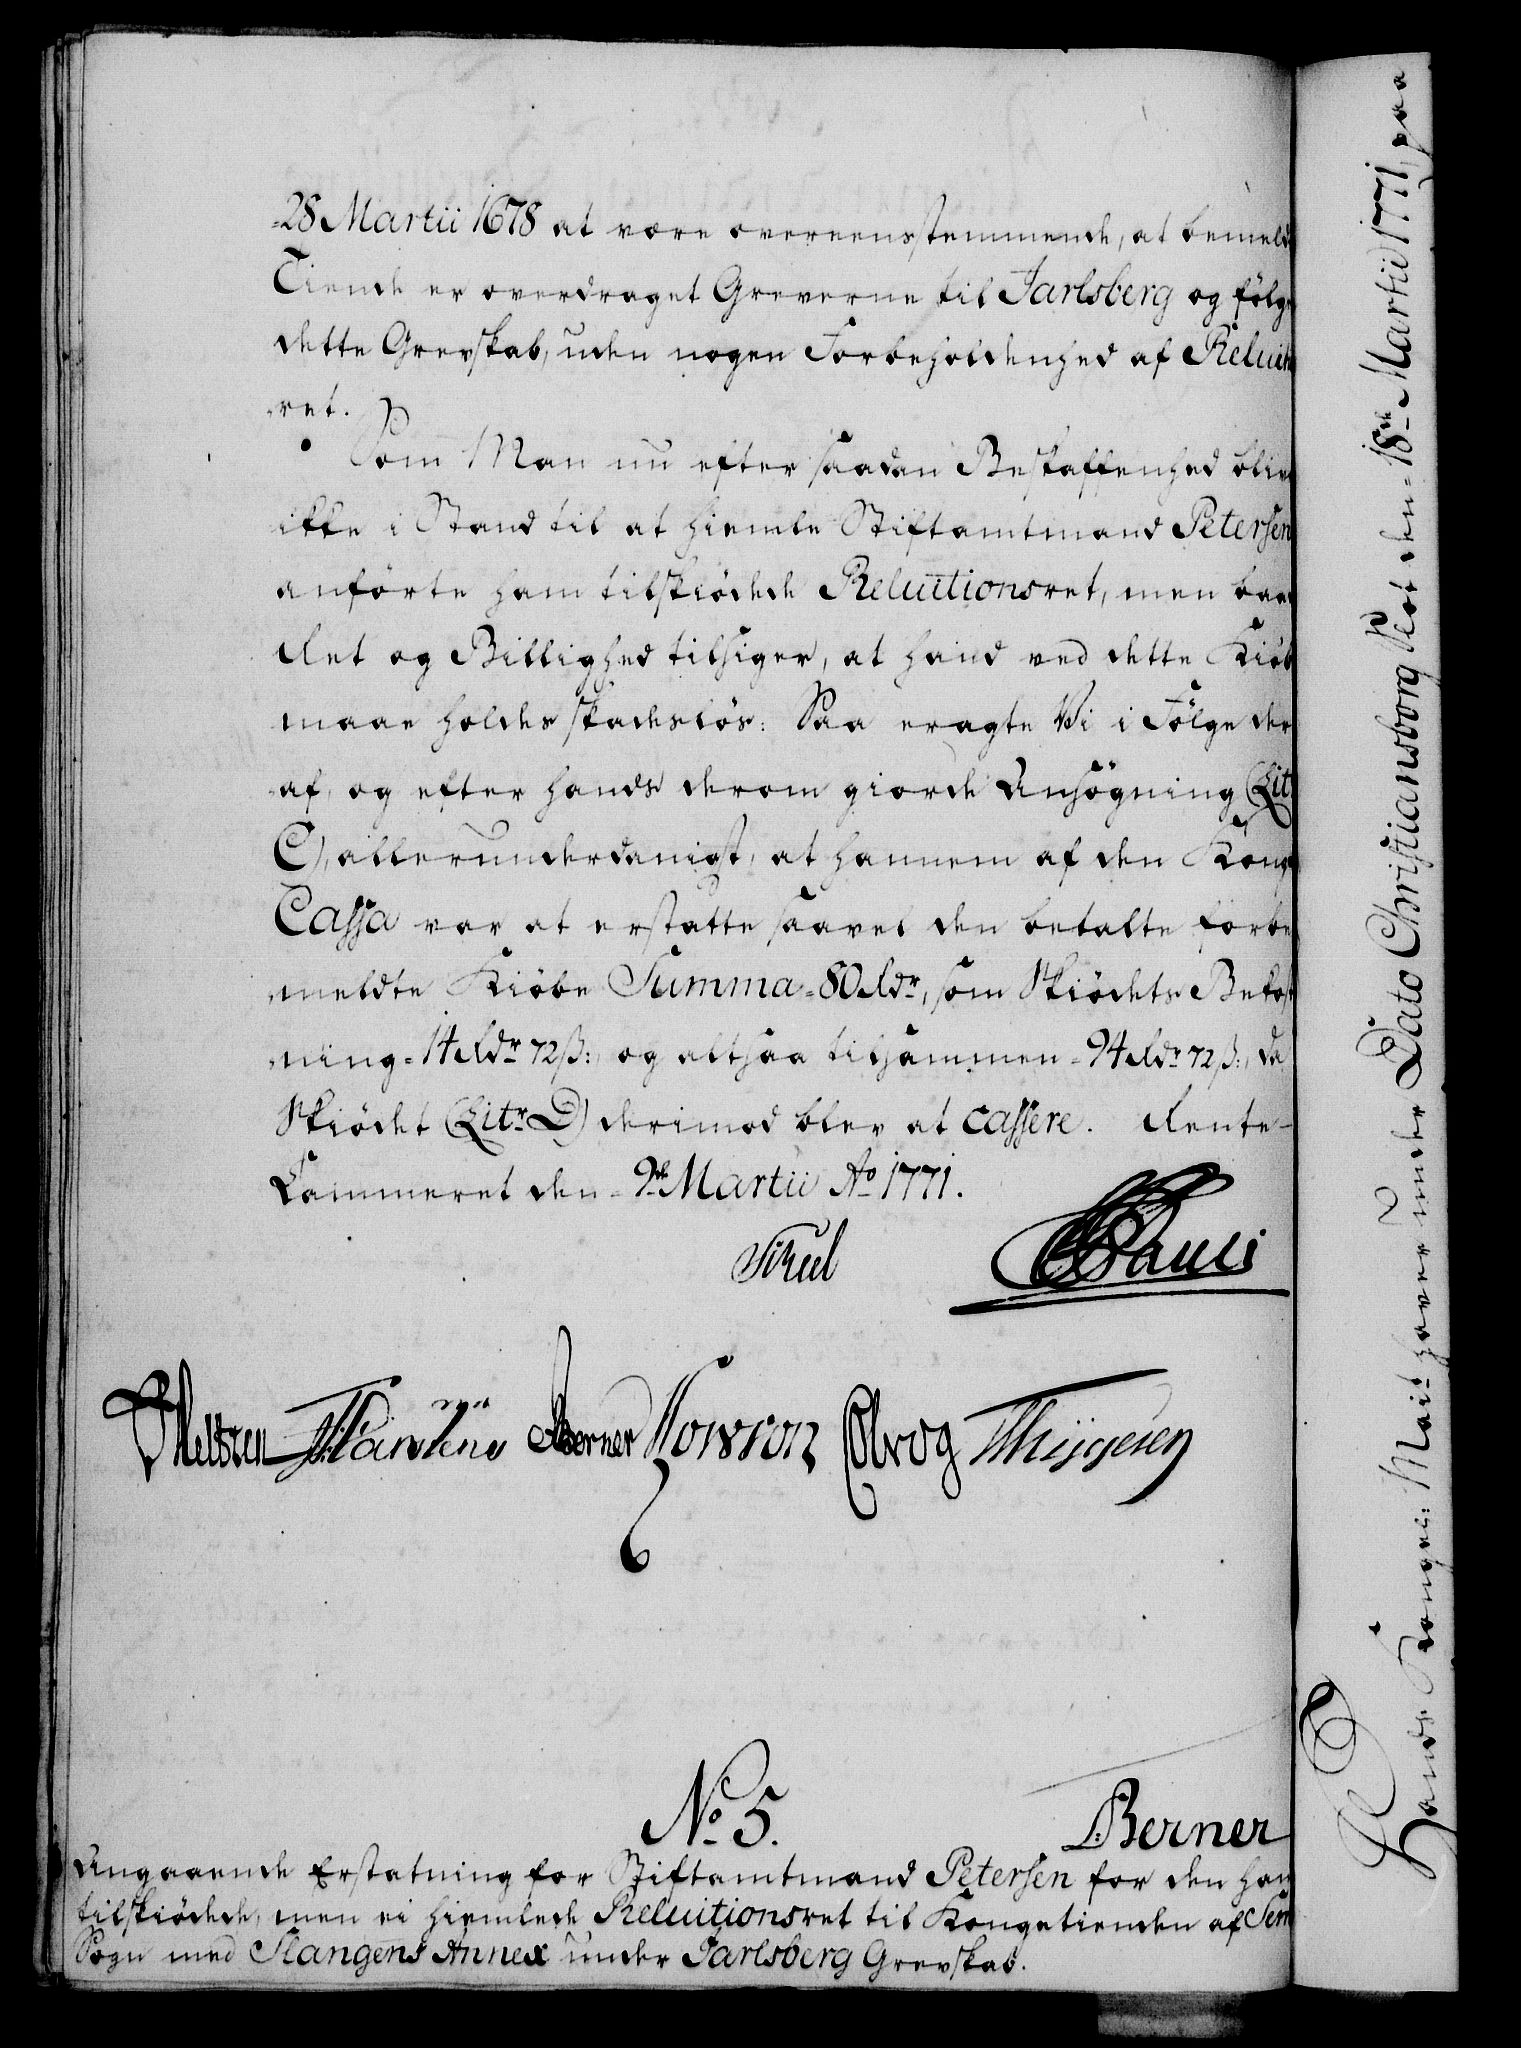 28 Martii 1678 at være overeensstemmende, at bemeld
Tiende er overdraget Greverne til Jarlsberg og følg
dette Grevskab, uden nogen Forbeholdenhed af Reluit
ret.
Som Man nu efter saadan Beskaffenhed blive
ikke i Stand til at hiemle Stiftamtmand Petersen
anførte ham tilskiødede Reluitionsret, men baa
Ret og Billighed tilsiger, at hand ved dette Kiøb
maae holdes skadesløs: Saa eragte Vi i Følge der
af, og efter hands derom giorde Ansøgning (Lit:
C), allerunderdanigst, at hannem af den Kong
Cassa var at erstatte saavel den betalte forbe
meldte Kiøbe Summa = 80 Rdr, som Skiødets Bekost
ning = 14 Rdr 72 ß:, og altsaa tilsammen = 94 Rdr 72 ß:, da
Skiødet (Litr. D) derimod blev at cassere. Rente-
Cammeret den = 9de Martii Ao 1771.
Pauli
Berner
No. 5.
L: Berner
Angaaende Erstatning for Stiftamtmand Petersen for den ham
tilskiødede, men ei hiemlede Reluitionsret til Kongetienden af Sem
Sogn med Slangens Annex under Jarlsberg Grevskab.
Hands Kongel: Mait. haver under Dato Christiansborg Slot den = 18de Martii 1771, paa